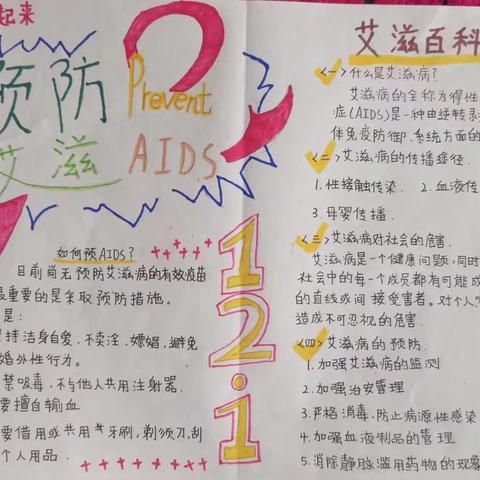 起来
预防
Prevent
艾滋
AIDS
如何预AIDS?
目前尚无预防艾滋病的有效疫苗
最重要的是采取预防措施。
是:
持洁身自爱,不卖淫、嫖娼,避免
婚外性行为。
禁吸毒,不与他人共用注射器.
要擅自输血
要借用或共用牙刷,剃须刀,刮
个人用品.
12.1
艾滋百科
<一>什么是艾滋病?
艾滋病的全称为得性
症(AIDS)是一种由逆转录
体免疫防御.系统方面的
<二>艾滋病的传播途径.
1.性接触传染. 2.血液传
3.母婴传播.
<三>艾滋病对社会的危害.
艾滋病是一个健康问题,同时
社会中的每一个成员都有可能成
的直线或间接受害者。对个人家
造成不可忽视的危害.
<四>艾滋病的预防.
1.加强艾滋病的监测
2.加强治安管理
3.严格消毒、防止病源性感染
4.加强血液制品的管理
5.消除静脉滥用药物的现象